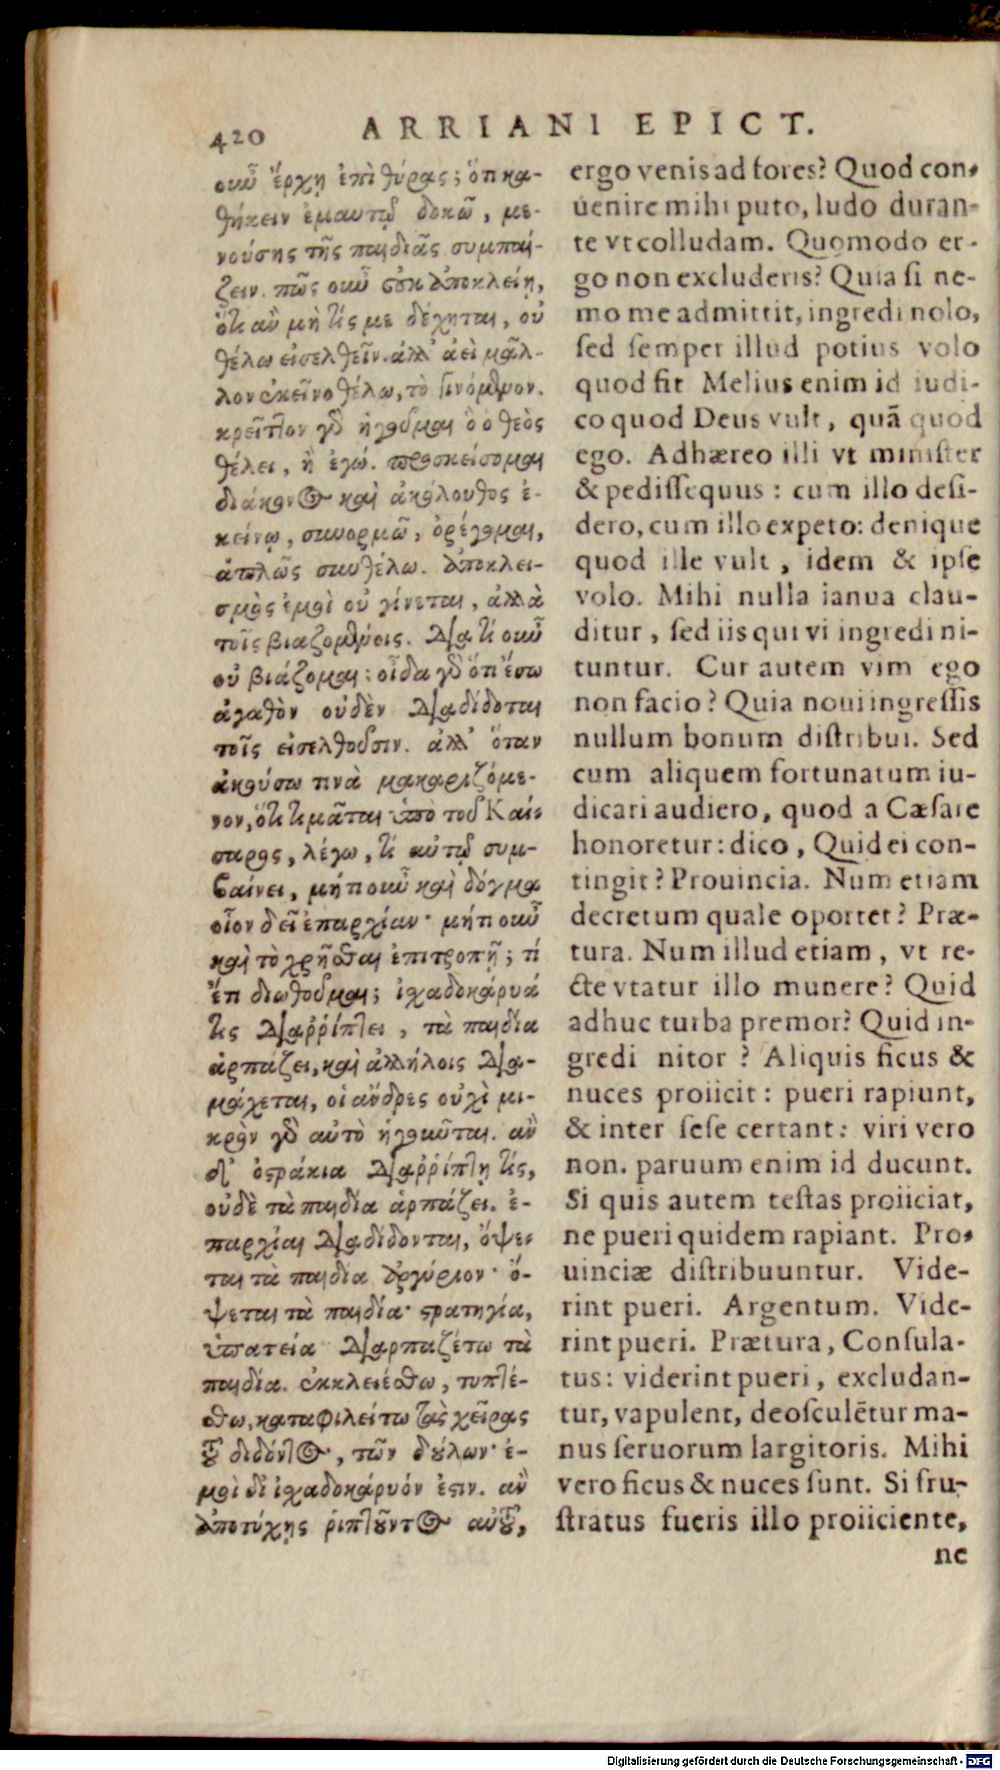 420 ARRIANI EPICT.
οιωῦ ἔρχῃ ἐπὶ θύρας; ὅτι κα-
θήκειν ἐμαυτῷ δοκῶ, με-
νούσης τῆς παιδιᾶς συμπαί-
ζειν. πῶς οὖν οὐκ ἀποκλείῃ,
ὅτι ἂν μὴ τίς με δέχηται, οὐ
θέλω εἰσελθεῖν. ἀλλ' ἀεὶ μᾶλ-
λον ἐκεῖνο θέλω, τὸ γινόμενον.
κρεῖττον γὰρ ἡγοῦμαι ὃ ὁ θεὸς
θέλει, ἢ ἐγώ. προσκείσομαι
διάκονος καὶ ἀκόλουθος ἐ-
κείνῳ, συνορμῶ, ὀρέγομαι,
ἁπλῶς συνθέλω. ἀποκλει-
σμὸς ἐμοὶ οὐ γίνεται, ἀλλὰ
τοῖς βιαζομένοις. Διὰ τί οὖν
οὐ βιάζομαι; οἶδα γὰρ ὅτι ἔσω
ἀγαθὸν οὐδὲν διαδίδοται
τοῖς εἰσελθοῦσιν. ἀλλ' ὅταν
ἀκούσω τινὰ μακαριζόμε-
νον, ὅτι τιμᾶται ὑπὸ τοῦ Καί-
σαρος, λέγω, τί αὐτῷ συμ-
βαίνει, μήτι οὖν καὶ δόγμα
οἷον δεῖ ἐπαρχίαν· μήτι οὖν
καὶ τὸ χρῆσθαι ἐπιτροπῇ; τί
ἔτι διωθοῦμαι; ἰχαδοκάρυά
τις διαῤῥίπτει, τὰ παιδία
ἁρπάζει, καὶ ἀλλήλοις δια-
μάχεται, οἱ ἄνδρες οὐχὶ μι-
κρὸν γὰρ αὐτὸ ἡγοῦνται. ἂν
δ' ὀστράκια διαῤῥίπτῃ τίς,
οὐδὲ τὰ παιδία ἁρπάζει. ἐ-
παρχίαι διαδίδονται, ὄψε-
ται τὰ παιδία ἀργύριον· ὄ-
ψεται τὰ παιδία· στρατηγία,
ὑπατεία διαρπαζέτω τὰ
παιδία. ἐκκλειέσθω, τυπτέ-
σθω, καταφιλείτω τὰς χεῖρας
τοῦ διδόντος, τῶν δούλων· ἐ-
μοὶ δ' ἰχαδοκάρυόν ἐστιν. ἂν
ἀποτύχῃς ῥιπτοῦντος αὐτοῦ,
ergo venis ad fores? Quod con-
uenire mihi puto, ludo duran-
te vt colludam. Quomodo er-
go non excluderis? Quia si ne-
mo me admittit, ingredi nolo,
sed semper illud potius volo
quod fit Melius enim id iudi-
co quod Deus vult, quã quod
ego. Adhæreo illi vt minister
& pedissequus : cum illo desi-
dero, cum illo expeto: denique
quod ille vult, idem & ipse
volo. Mihi nulla ianua clau-
ditur, sed iis qui vi ingredi ni-
tuntur. Cur autem vim ego
non facio? Quia noui ingressis
nullum bonum distribui. Sed
cum aliquem fortunatum iu-
dicari audiero, quod a Cæsare
honoretur: dico, Quid ei con-
tingit? Prouincia. Num etiam
decretum quale oportet? Præ-
tura. Num illud etiam, vt re-
cte vtatur illo munere? Quid
adhuc turba premor? Quid in-
gredi nitor ? Aliquis ficus &
nuces proiicit: pueri rapiunt,
& inter sese certant: viri vero
non. paruum enim id ducunt.
Si quis autem testas proiiciat,
ne pueri quidem rapiant. Pro-
uinciæ distribuuntur. Vide-
rint pueri. Argentum. Vide-
rint pueri. Prætura, Consula-
tus: viderint pueri, excludan-
tur, vapulent, deosculẽtur ma-
nus seruorum largitoris. Mihi
vero ficus & nuces sunt. Si fru-
stratus fueris illo proiiciente,
ne
Digitalisierung gefördert durch die Deutsche Forschungsgemeinschaft - DFG